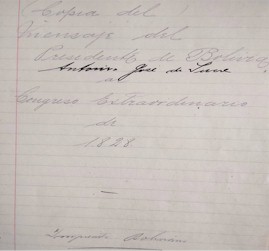 Copia del
Mensaje del
Presidente de Bolivia
Antonio José de Sucre
al
Congreso Extraordinario
de
1828